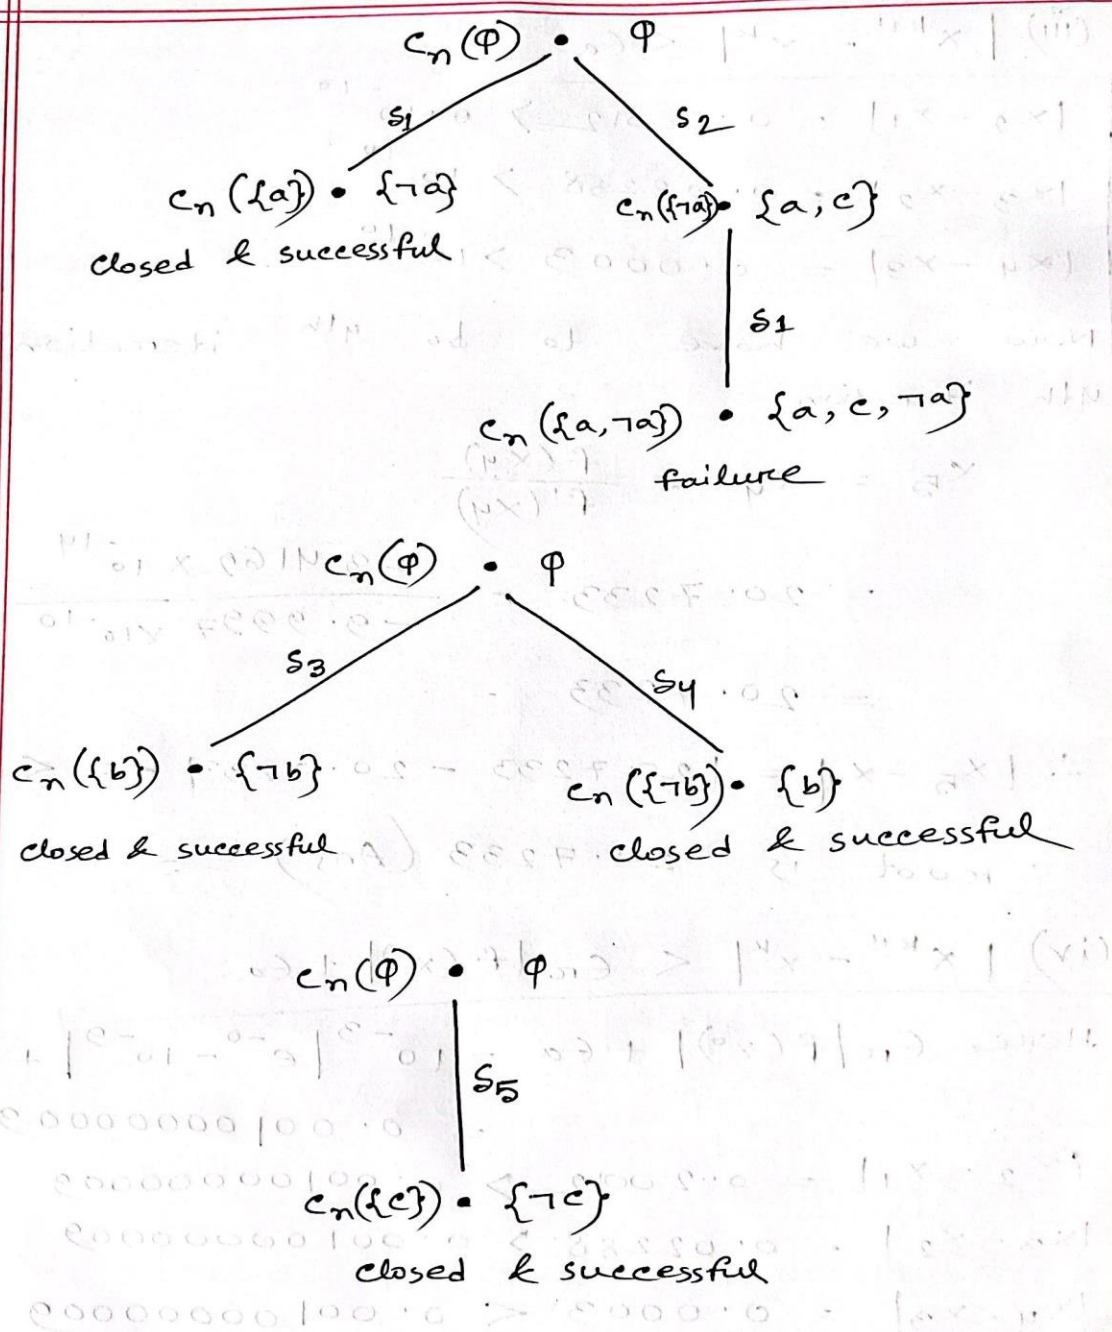 Cn(φ) • φ
S1 S2
Cn({a}) • {¬a} Cn({¬a}) • {a, c}
closed & successful
S1
Cn({a, ¬a}) • {a, c, ¬a}
failure
Cn(φ) • φ
S3 S4
Cn({b}) • {¬b} Cn({¬b}) • {b}
closed & successful closed & successful
Cn(φ) • φ
S5
Cn({c}) • {¬c}
closed & successful